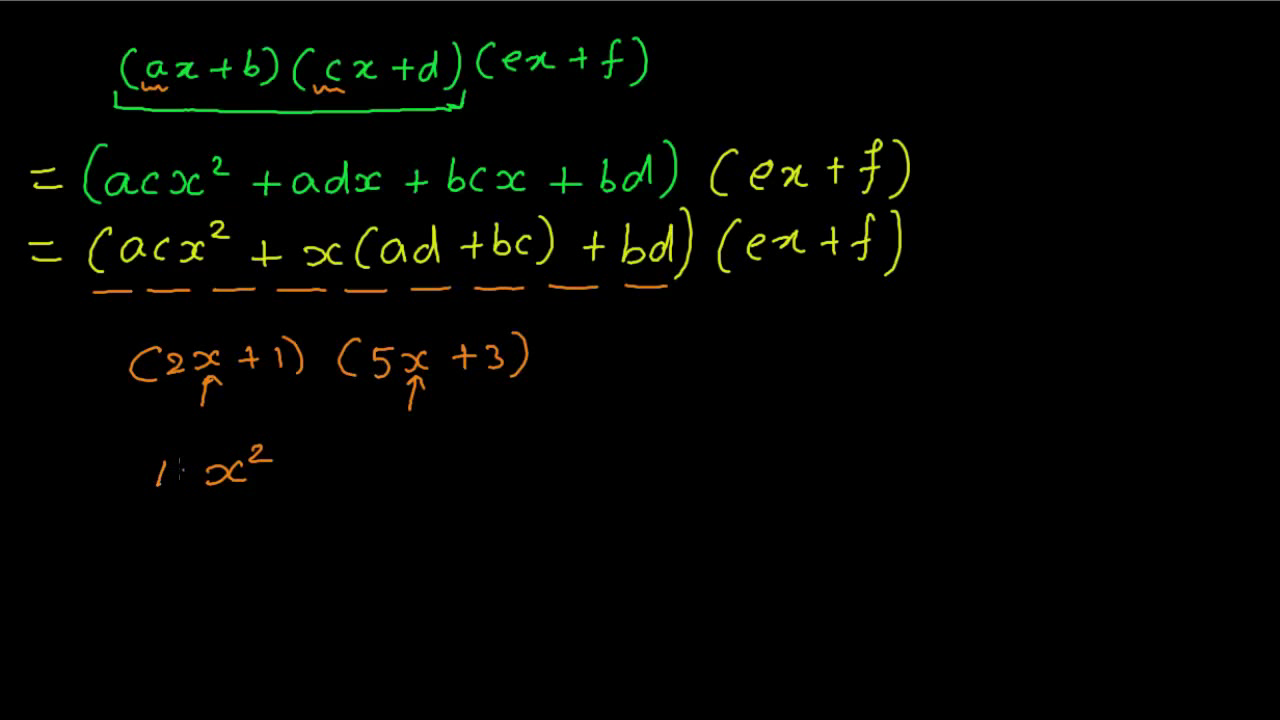 (ax + b) (cx + d) (ex + f)
= (acx² + adx + bcx + bd) (ex + f)
= (acx² + x(ad + bc) + bd) (ex + f)
(2x + 1) (5x + 3)
x²